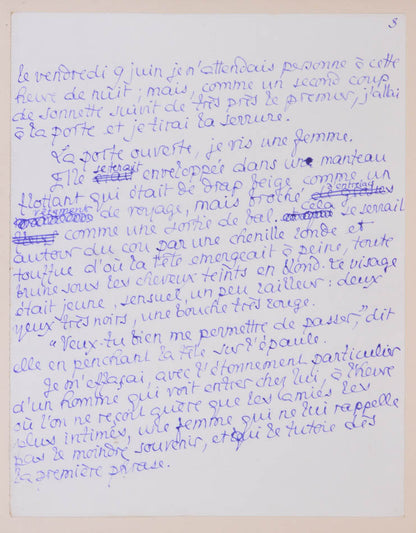 3
le vendredi 9 juin je n'attendais personne à cette
heure de nuit ; mais, comme un second coup
de sonnette suivit de très près le premier, j'allai
à la porte et je tirai la serrure.
La porte ouverte, je vis une femme.
Elle se tenait enveloppée dans un manteau
flottant, qui était de drap beige, comme un
vêtement de voyage, mais broché,
comme une sortie de bal. cela se serrait
autour du cou par une chenille ronde et
touffue d'où la tête émergeait à peine, toute
brune sous les cheveux teints en blond. Le visage
était jeune, sensuel, un peu railleur : deux
yeux très noirs, une bouche très rouge.
"Veux-tu bien me permettre de passer," dit
elle en penchant la tête sur l'épaule.
Je m'effaçai, avec l'étonnement particulier
d'un homme qui voit entrer chez lui, à l'heure
où l'on ne reçoit guère que les amies les
plus intimes, une femme qui ne lui rappelle
pas le moindre souvenir, et qui le tutoie dès
la première phrase.